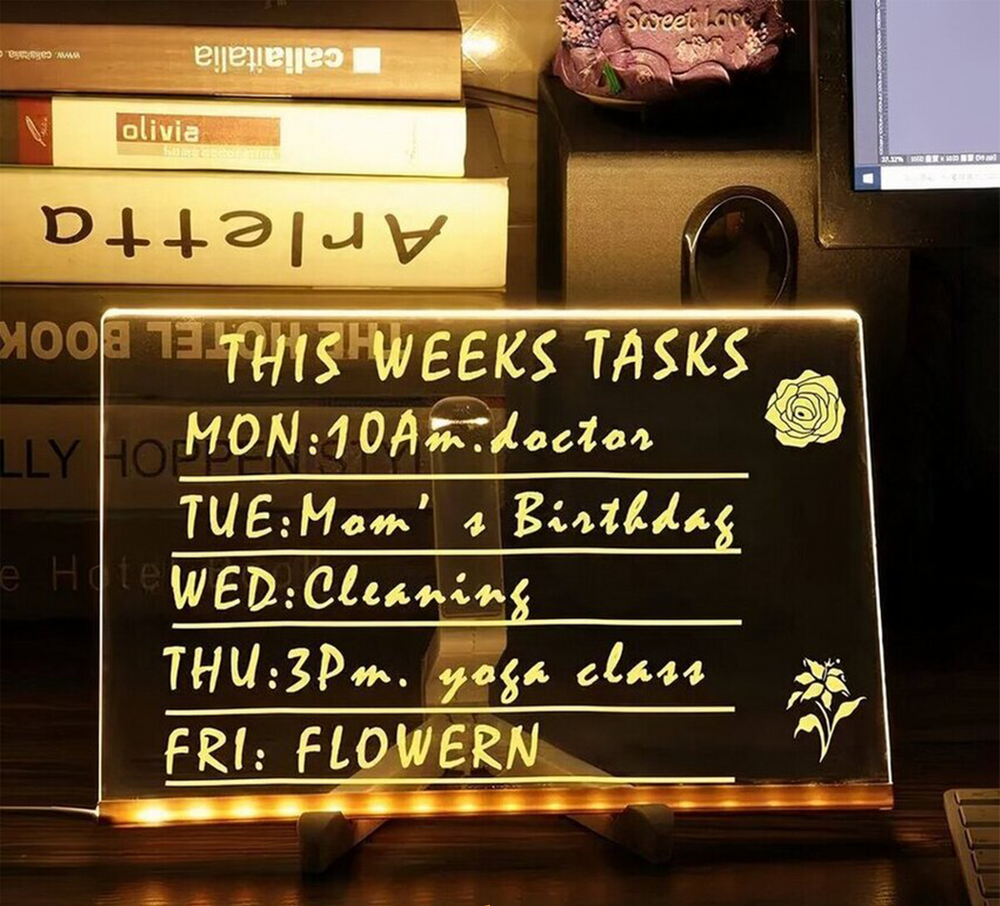 www.
caliaitalia
olivia
Arletta
THE HOTEL BOOK
LLY HOPPEN STY
e Hote
Sweet Love
37.32%
THIS WEEKS TASKS
MON:10Am.doctor
TUE:Mom's Birthday
WED:Cleaning
THU:3Pm. yoga class
FRI: FLOWERN